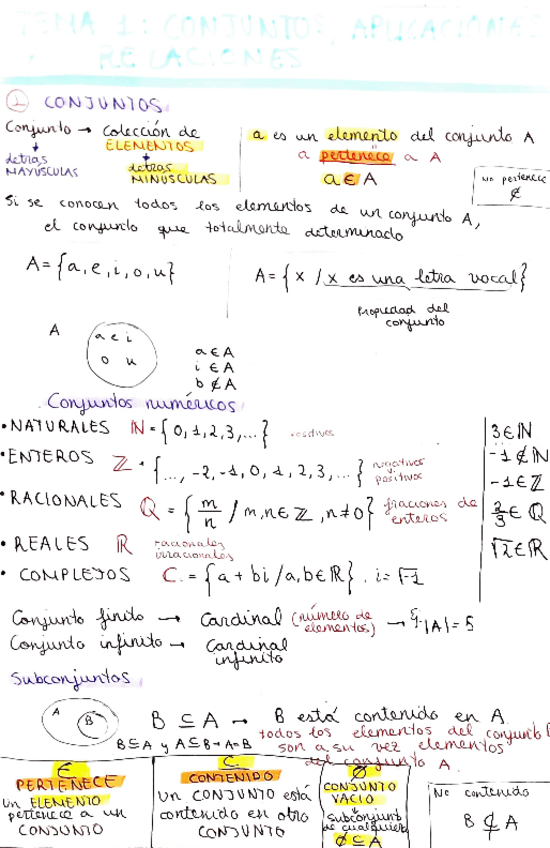 TEMA 1: CONJUNTOS, APLICACIONES
Y RELACIONES
① CONJUNTOS
Conjunto → Colección de ELEMENTOS
↓ letras MAYÚSCULAS
↓ letras MINÚSCULAS
a es un elemento del conjunto A
a pertenece a A
a ∈ A
No pertenece ∉
Si se conocen todos los elementos de un conjunto A,
el conjunto que totalmente determinado
A = {a, e, i, o, u}
A = {x / x es una letra vocal}
Propiedad del conjunto
A
a e i
o u
a ∈ A
i ∈ A
b ∉ A
Conjuntos numéricos
• NATURALES ℕ = {0, 1, 2, 3, ...} positivos
• ENTEROS ℤ = {..., -2, -1, 0, 1, 2, 3, ...} negativos positivos
• RACIONALES ℚ = {m/n / m, n ∈ ℤ, n ≠ 0} fraciones de enteros
• REALES ℝ racionales irracionales
• COMPLEJOS C = {a + bi / a, b ∈ ℝ}. i = √-1
3 ∈ ℕ
-1 ∉ ℕ
-1 ∈ ℤ
2/3 ∈ ℚ
√2 ∈ ℝ
Conjunto finito → Cardinal (número de elementos) → |A| = 5
Conjunto infinito → Cardinal infinito
Subconjuntos
A
B
B ⊆ A → B está contenido en A
B ⊆ A y A ⊆ B → A = B
todos los elementos del conjunto B
son a su vez elementos
del conjunto A.
∈
PERTENECE
Un ELEMENTO
pertenece a un
CONJUNTO
⊆
CONTENIDO
Un CONJUNTO está
contenido en otro
CONJUNTO
∅
CONJUNTO
VACIO
↓
subconjunt
de cualquier
∅ ⊆ A
No contenido
B ⊈ A